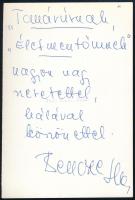 "Tanárúrnak,
"Életmentőmnek"
nagyon nagy
szeretettel,
hálával
köszönettel
Bencze